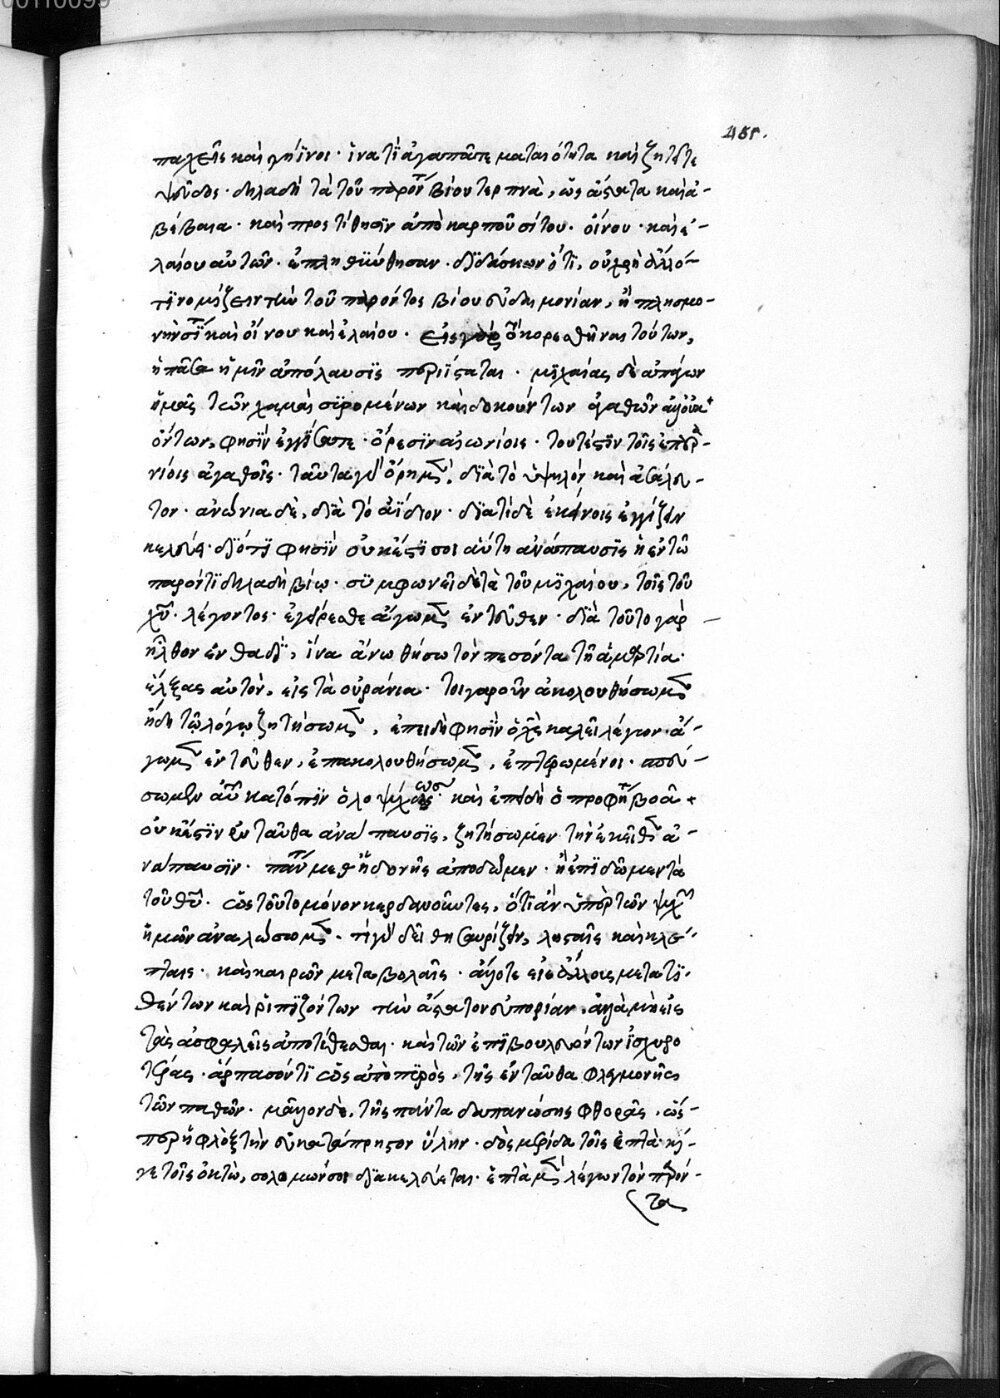 00110099
παχεῖς καὶ γήϊνοι · ἵνα τί ἀγαπᾶτε ματαιότητα καὶ ζητεῖτε
ψεῦδος · δηλαδὴ τὰ τοῦ παρόντ βίου τερπνὰ, ὡς ἄστατα καὶ ἀ-
βέβαια · καὶ προστίθησιν ἀπὸ καρποῦ σίτου · οἴνου · καὶ ἐ-
λαίου αὐτῶν · ἐπληθύνθησαν · διδάσκων ὅτι, οὐ χρὴ ἄλλό-
τι νομίζειν τὴν τοῦ παρόντος βίου εὐδαιμονίαν, ἢ πλησμο-
νὴν σίτ καὶ οἴνου καὶ ἐλαίου · εἰς γὰρ τὸ κορεσθῆναι τούτων,
ἡ πᾶσα ἡμῖν ἀπόλαυσις περιίσταται · μιχαίας δὲ ἀπάγων
ἡμᾶς τῶν χαμαὶ συρομένων καὶ δοκούντων ἀγαθῶν
ὄντων, φησὶν ἐγγίσατε · ὄρεσιν αἰωνίοις · τουτέστιν τοῖς ἐπουρα-
νίοις ἀγαθοῖς · ταῦτα γὰρ ὄρη μὲν, διὰ τὸ ὑψηλὸν καὶ ἀσάλευ-
τον · αἰώνια δὲ, διὰ τὸ ἀΐδιον · διατί δὲ ἐκείνοις ἐγγίζειν
κελεύει · διότι φησὶν οὐκ ἔστι σοι αὕτη ἀνάπαυσις ἡ ἐν τῶ
παρόντι δηλαδὴ βίῳ · συμφωνεῖ δὲ τὰ τοῦ μιχαίου, τοῖς τοῦ
χυ · λέγοντος · ἐγείρεσθε ἄγωμεν ἐντεῦθεν · διὰ τοῦτο γὰρ
ἦλθον ἐνθαδὶ, ἵνα ἀνορθώσω τὸν πεσόντα τῇ ἁμαρτία ·
ἑλξας αὐτὸν, εἰς τὰ οὐράνια · τοιγαροῦν ἀκολουθήσωμεν
ἤδη τῶ λόγῳ ζητήσωμεν, ἐπειδὲ φησὶν ὁ χς καλεῖ λέγων · ἄ-
γωμεν ἐντεῦθεν, ἐπακολουθήσωμεν, ἐπτερωμένοι · σπεύ-
σωμεν αὐτ κατόπιν ὁλοψύχως · καὶ ἐπειδὴ ὁ προφήτ βοᾶ
οὐκ ἔστιν ἐνταῦθα ἀνάπαυσις, ζητήσωμεν τὴν ἐκεῖθεν ἀ-
νάπαυσιν · πάντ μεθ' ἡδονῆς ἀποδῶμεν · ἢ ἐπιδῶμεν τὰ
τοῦ θυ · ὡς τοῦτο μόνον κερδαίνοντες, ὅτι ἂν ὑπὲρ τῶν ψυχῶν
ἡμῶν ἀναλώσωμεν · τί γὰρ δεῖ θησαυρίζειν, λησταῖς καὶ κλέ-
πταις · καὶ καιρῶν μεταβολαῖς · ἄλλοτε εἰς ἄλλοις μετατι-
θέντων καὶ ῥιπιζόντων τὴν ἄστατον εὐπορίαν · ἀλλὰ μὴ εἰς
τὰς ἀσφαλεῖς ἀποτίθεσθαι · καὶ τῶν ἐπιβουλευόντων ἰσχυρο
τέρας · ἁρπάσοντι ὡς ἀπὸ πυρὸς, τῆς ἐνταῦθα φλεγμονῆς
τῶν παθῶν · μᾶλλον δὲ, τῆς πάντα δαπανώσης φθορᾶς · ὥσ-
περ ἡ φλὸξ τὴν εὐκατάπρηστον ὕλην · δὸς μερίδα τοῖς ἑπτὰ κἄ-
γε τοῖς ὀκτὼ, σολομών σοι διακελεύεται · ἑπτὰ μὲν λέγων τὸν παρόν-
τα